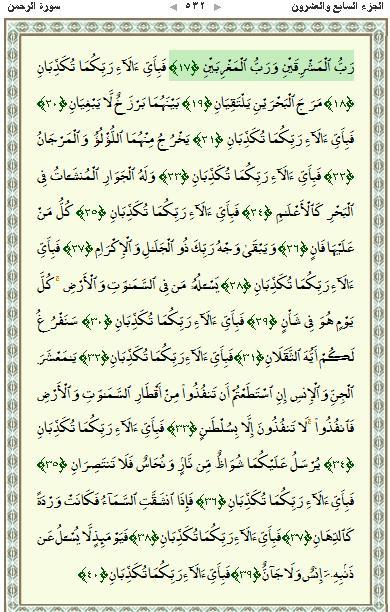 الجزء السابع والعشرون ◄ ٥٣٢ ► سورة الرحمن
رَبُّ ٱلْمَشْرِقَيْنِ وَرَبُّ ٱلْمَغْرِبَيْنِ ﴿١٧﴾ فَبِأَيِّ ءَالَآءِ رَبِّكُمَا تُكَذِّبَانِ
﴿١٨﴾ مَرَجَ ٱلْبَحْرَيْنِ يَلْتَقِيَانِ ﴿١٩﴾ بَيْنَهُمَا بَرْزَخٌ لَّا يَبْغِيَانِ ﴿٢٠﴾
فَبِأَيِّ ءَالَآءِ رَبِّكُمَا تُكَذِّبَانِ ﴿٢١﴾ يَخْرُجُ مِنْهُمَا ٱللُّؤْلُؤُ وَٱلْمَرْجَانُ
﴿٢٢﴾ فَبِأَيِّ ءَالَآءِ رَبِّكُمَا تُكَذِّبَانِ ﴿٢٣﴾ وَلَهُ ٱلْجَوَارِ ٱلْمُنشَـَٔاتُ فِى
ٱلْبَحْرِ كَٱلْأَعْلَـٰمِ ﴿٢٤﴾ فَبِأَيِّ ءَالَآءِ رَبِّكُمَا تُكَذِّبَانِ ﴿٢٥﴾ كُلُّ مَنْ
عَلَيْهَا فَانٍ ﴿٢٦﴾ وَيَبْقَىٰ وَجْهُ رَبِّكَ ذُو ٱلْجَلَـٰلِ وَٱلْإِكْرَامِ ﴿٢٧﴾ فَبِأَيِّ
ءَالَآءِ رَبِّكُمَا تُكَذِّبَانِ ﴿٢٨﴾ يَسْـَٔلُهُۥ مَن فِى ٱلسَّمَـٰوَٰتِ وَٱلْأَرْضِ ۚ كُلَّ
يَوْمٍ هُوَ فِى شَأْنٍ ﴿٢٩﴾ فَبِأَيِّ ءَالَآءِ رَبِّكُمَا تُكَذِّبَانِ ﴿٣٠﴾ سَنَفْرُغُ
لَكُمْ أَيُّهَ ٱلثَّقَلَانِ ﴿٣١﴾ فَبِأَيِّ ءَالَآءِ رَبِّكُمَا تُكَذِّبَانِ ﴿٣٢﴾ يَـٰمَعْشَرَ
ٱلْجِنِّ وَٱلْإِنسِ إِنِ ٱسْتَطَعْتُمْ أَن تَنفُذُوا۟ مِنْ أَقْطَارِ ٱلسَّمَـٰوَٰتِ وَٱلْأَرْضِ
فَٱنفُذُوا۟ ۚ لَا تَنفُذُونَ إِلَّا بِسُلْطَـٰنٍ ﴿٣٣﴾ فَبِأَيِّ ءَالَآءِ رَبِّكُمَا تُكَذِّبَانِ
﴿٣٤﴾ يُرْسَلُ عَلَيْكُمَا شُوَاظٌ مِّن نَّارٍ وَنُحَاسٌ فَلَا تَنتَصِرَانِ ﴿٣٥﴾
فَبِأَيِّ ءَالَآءِ رَبِّكُمَا تُكَذِّبَانِ ﴿٣٦﴾ فَإِذَا ٱنشَقَّتِ ٱلسَّمَآءُ فَكَانَتْ وَرْدَةً
كَٱلدِّهَانِ ﴿٣٧﴾ فَبِأَيِّ ءَالَآءِ رَبِّكُمَا تُكَذِّبَانِ ﴿٣٨﴾ فَيَوْمَئِذٍ لَّا يُسْـَٔلُ عَن
ذَنۢبِهِۦٓ إِنسٌ وَلَا جَآنٌّ ﴿٣٩﴾ فَبِأَيِّ ءَالَآءِ رَبِّكُمَا تُكَذِّبَانِ ﴿٤٠﴾